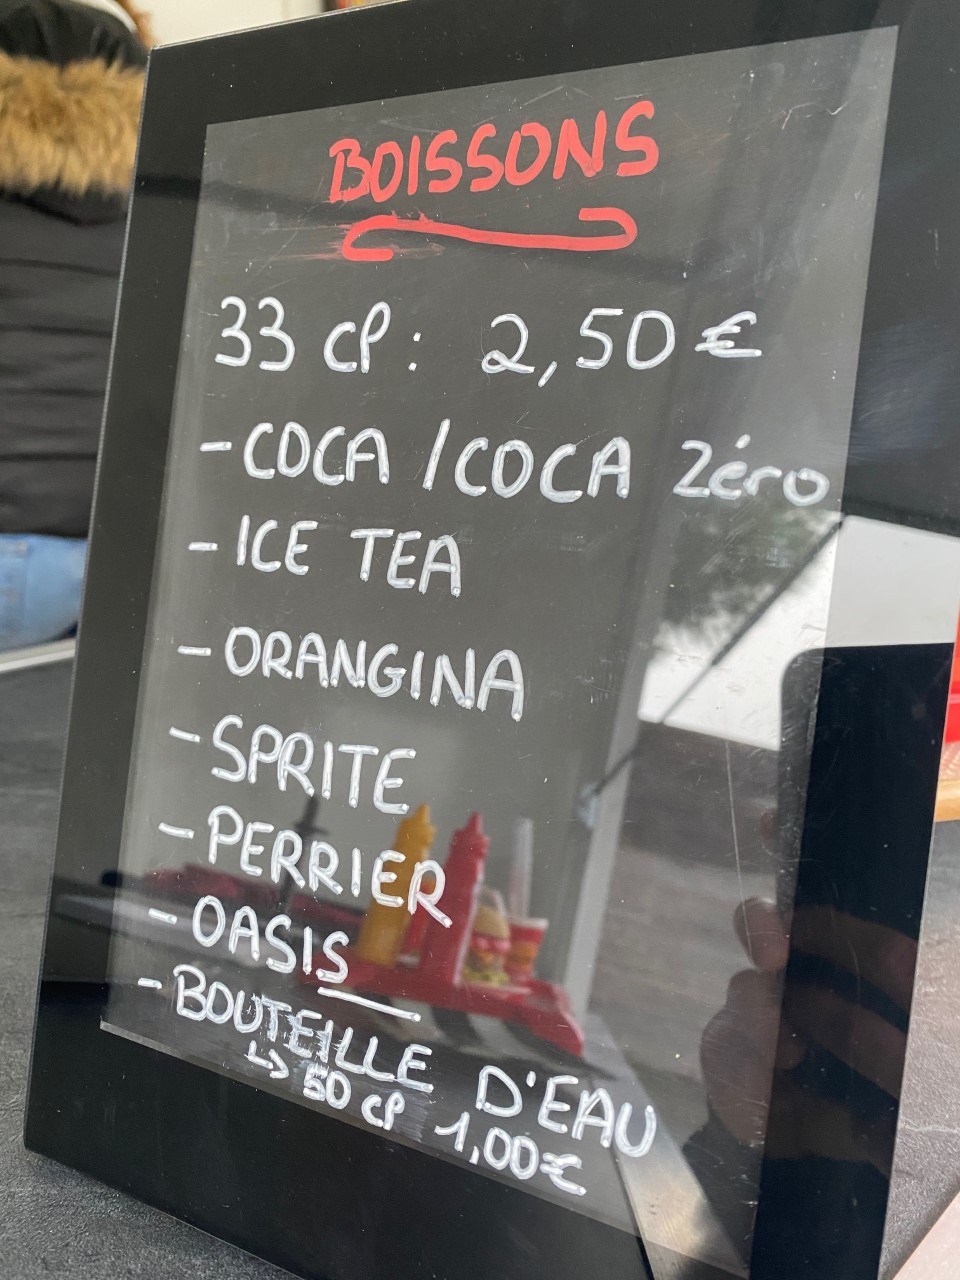 BOISSONS
33 cl : 2,50 €
- COCA / COCA Zéro
- ICE TEA
- ORANGINA
- SPRITE
- PERRIER
- OASIS
- BOUTEILLE D'EAU
↳ 50 cl 1,00€